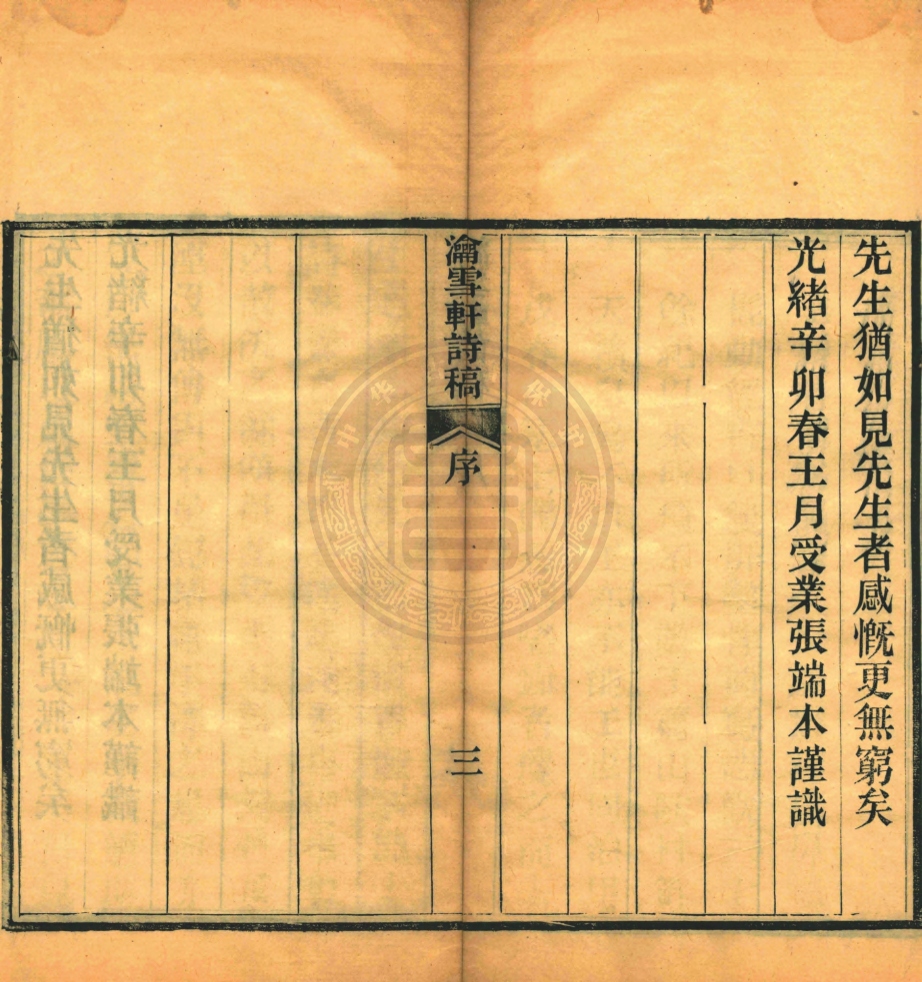 先生猶如見先生者感慨更無窮矣
光緒辛卯春王月受業張端本謹識
瀹雪軒詩稿
序
三